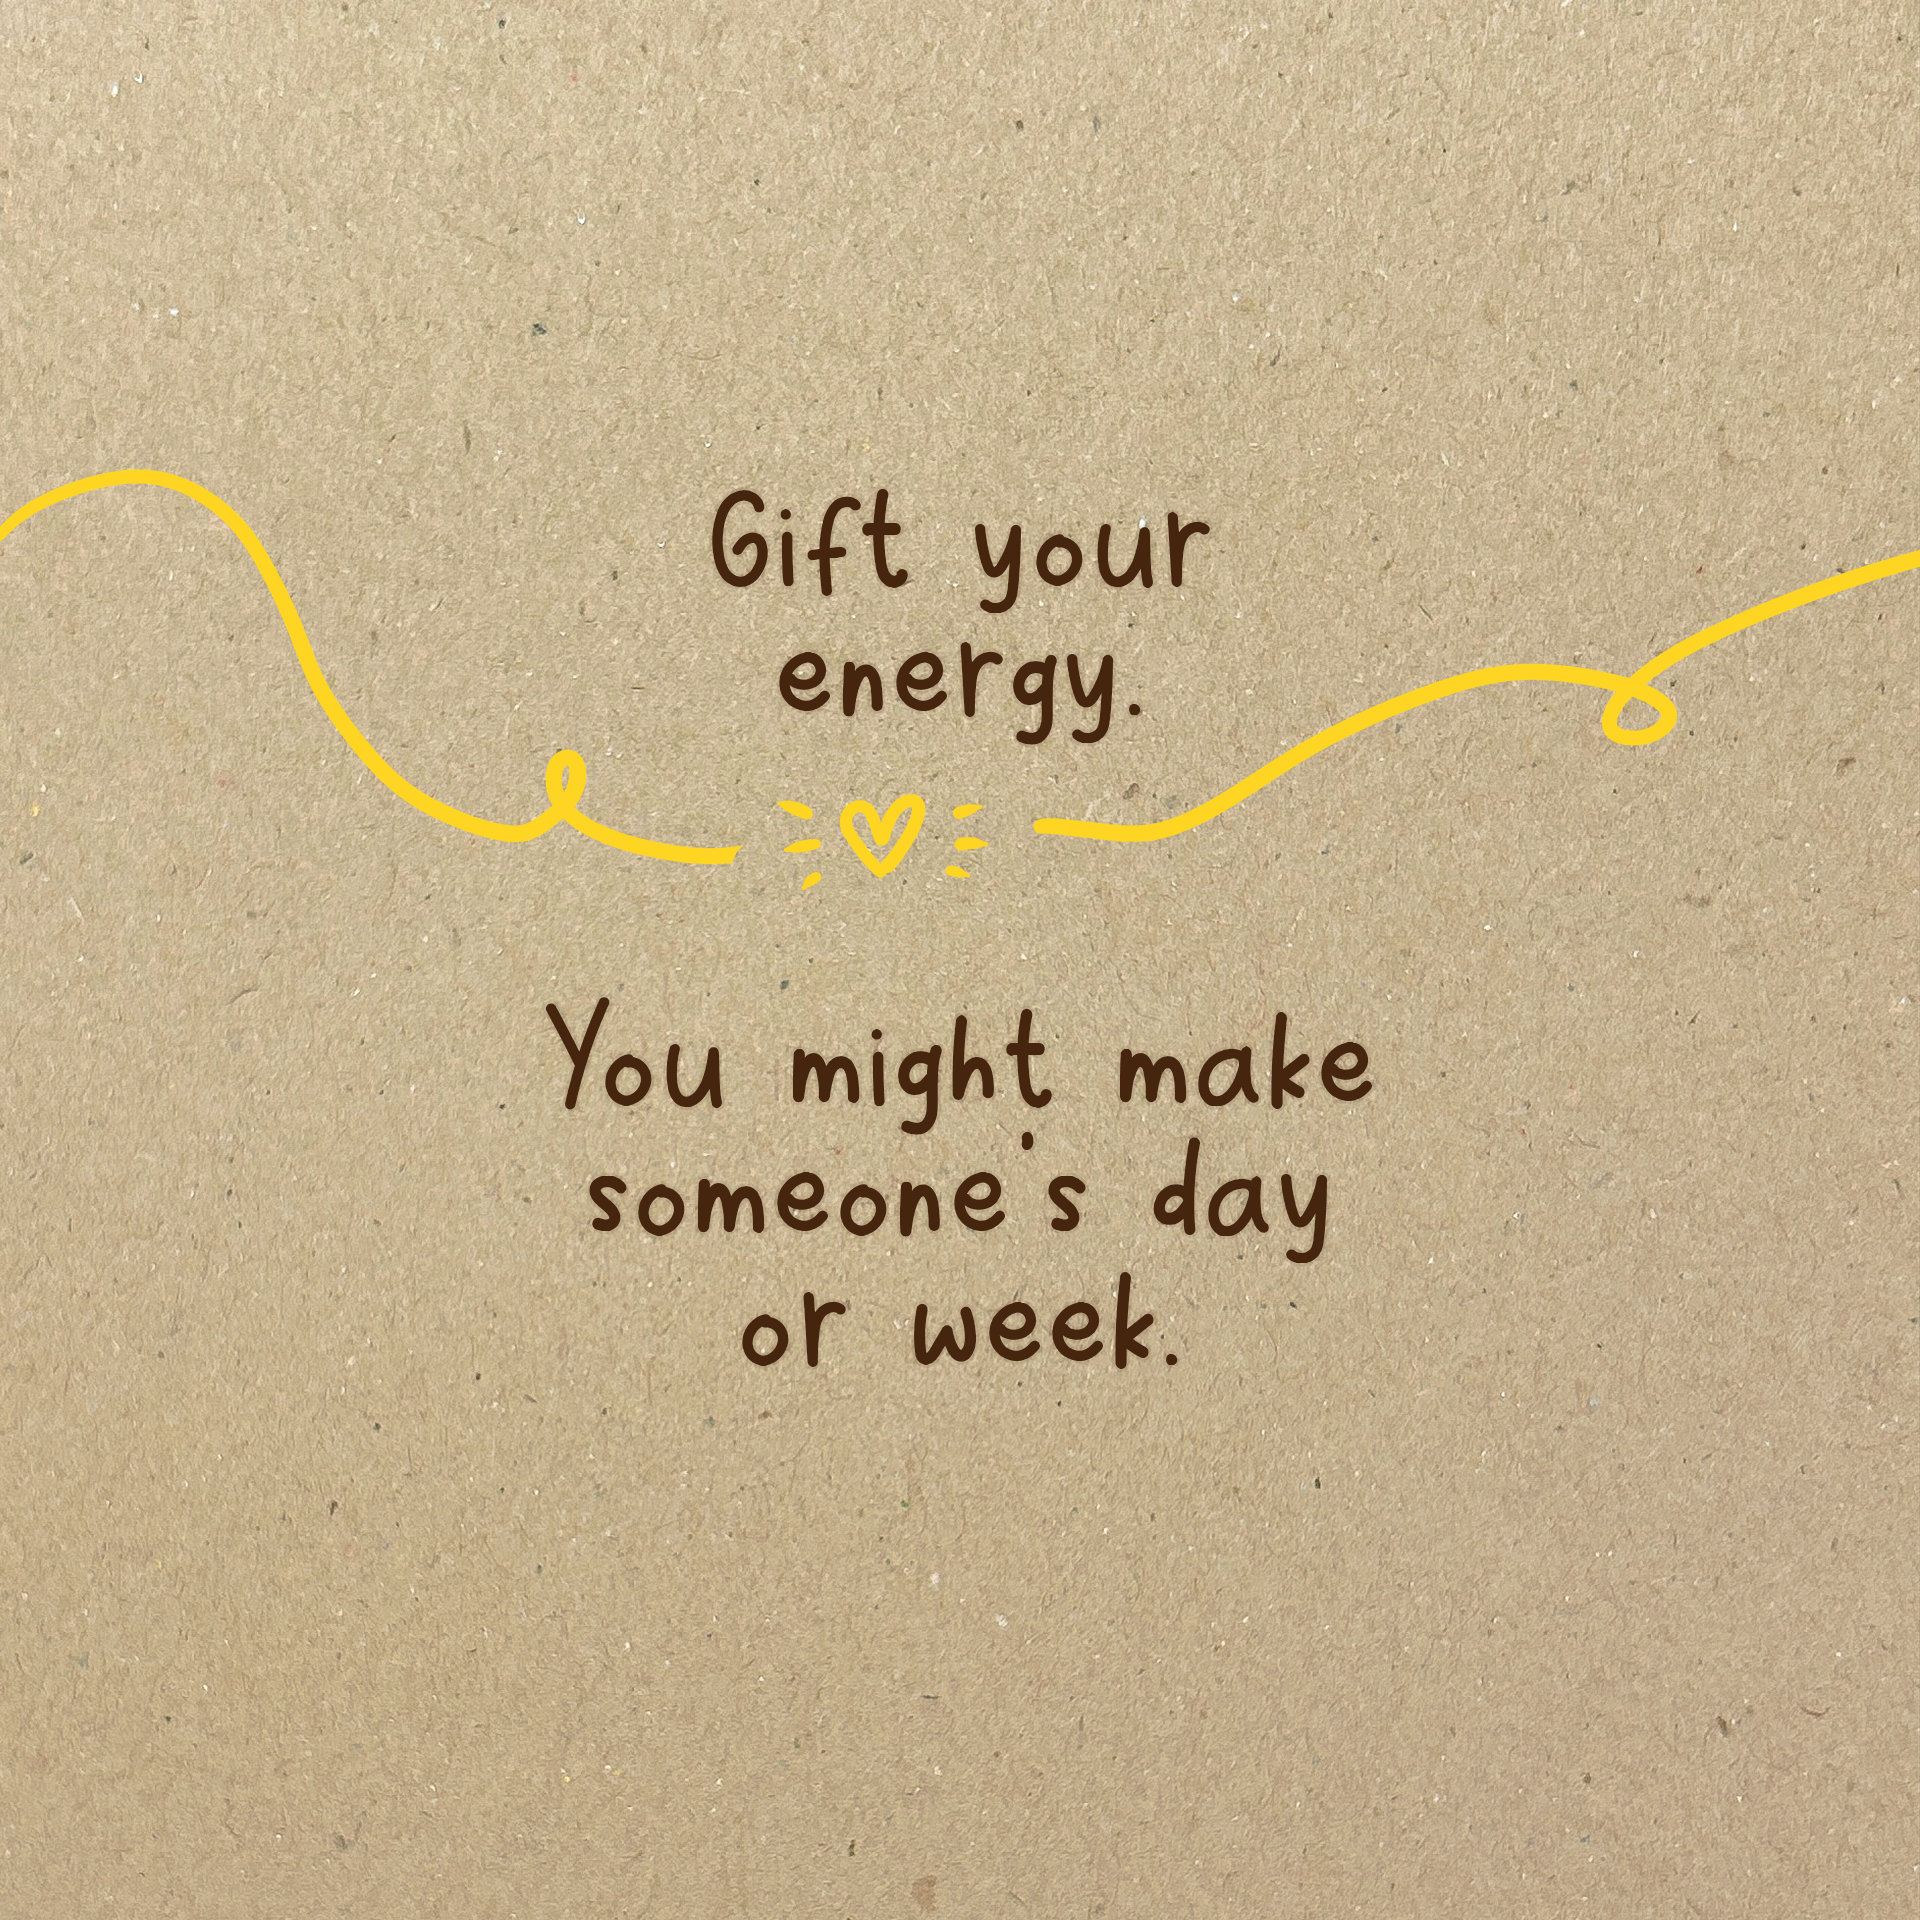 Gift your
energy.
You might make
someone's day
or week.